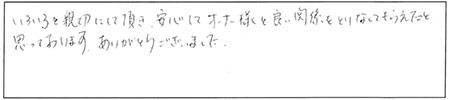 いろいろと親切にして頂き、安心してオーナー様と良い関係をとりなしてもらえたと
思っております。ありがとうございました。